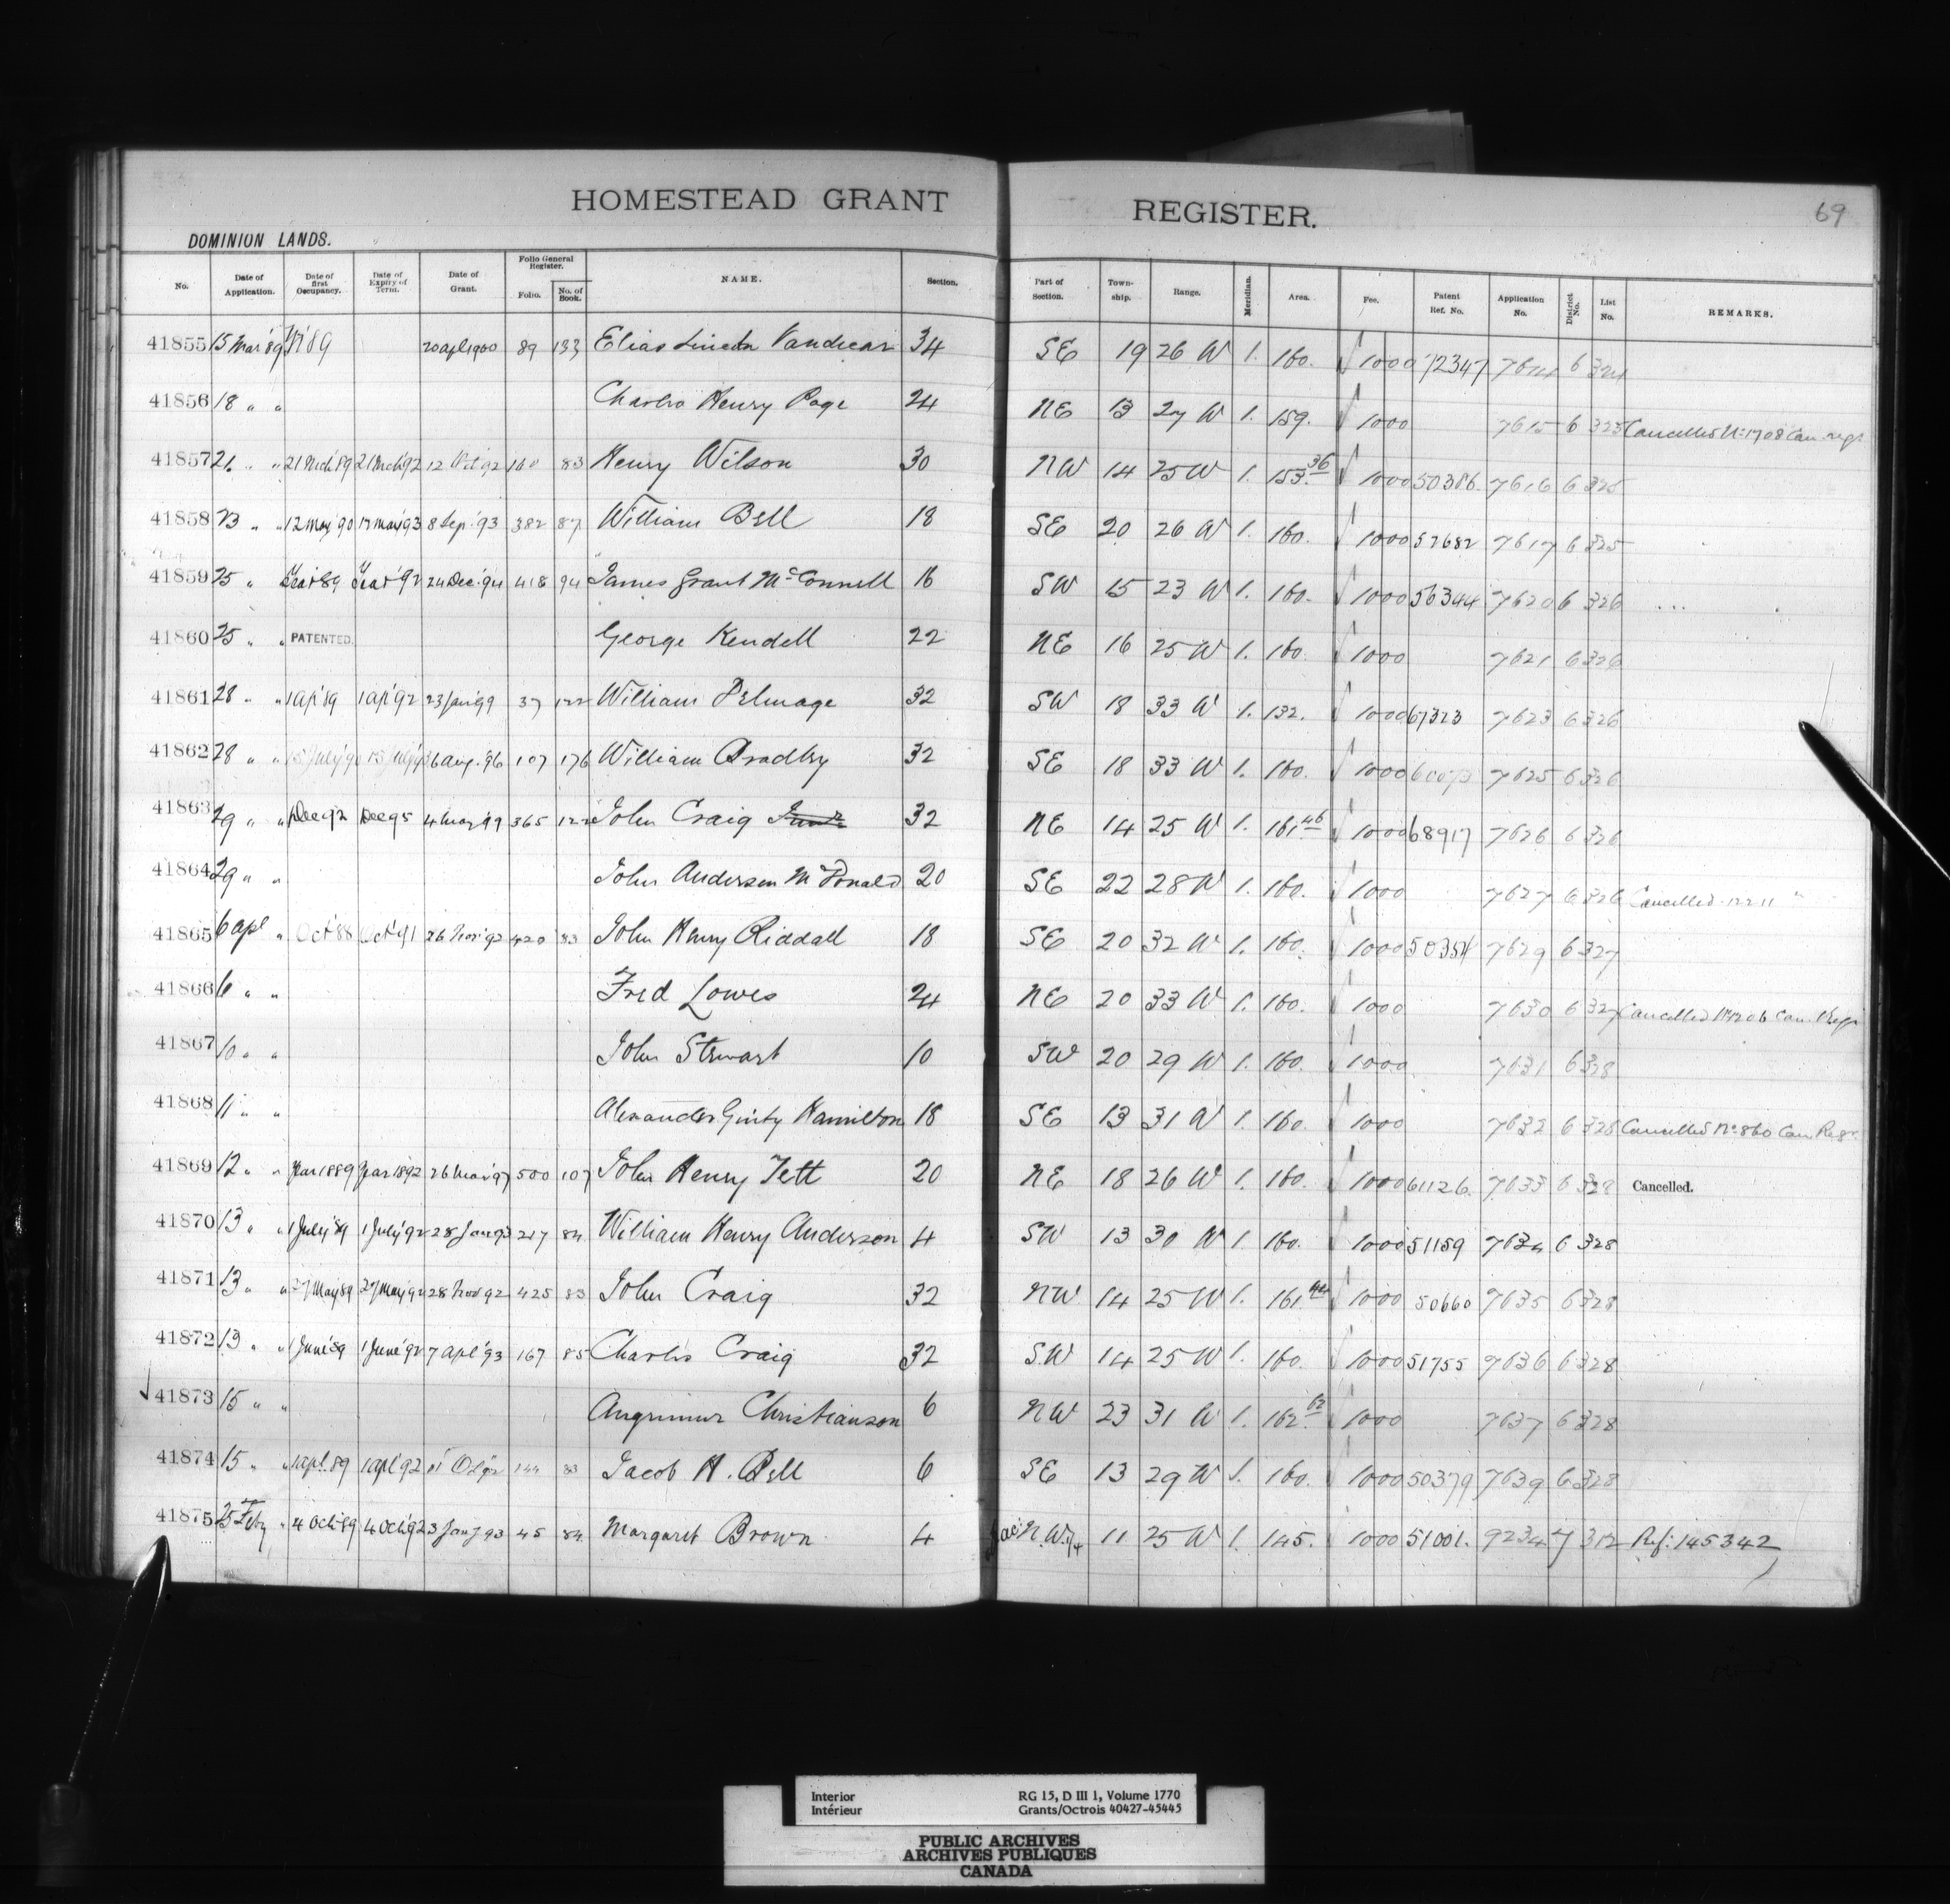 HOMESTEAD GRANT REGISTER. 69
DOMINION LANDS.
No. Date of Application. Date of first Occupancy. Date of Expiry of Term. Date of Grant. Folio General Register. Folio. No. of Book. NAME. Section. Part of Section. Township. Range. Meridian. Area. Fee. Patent Ref. No. Application No. District No. List No. REMARKS.
41855 15 Mar '89 20 apl 1900 89 133 Elias Lincoln Vandecar 34 SE 19 26 W 1. 160. 1000 72347 7614 6 324
41856 18 " " Charles Henry Page 24 NE 13 27 W 1. 159. 1000 7615 6 325 Cancelled No 1708 Can. regr
41857 21 " " 21 Mch 89 21 Mch 92 12 Oct 92 160 83 Henry Wilson 30 NW 14 25 W 1. 153.36 1000 50386 7616 6 325
41858 23 " " 12 May '90 12 May '93 8 Sep. '93 382 87 William Bell 18 SE 20 26 W 1. 160. 1000 52682 7617 6 325
41859 25 " 24 Dec '94 418 94 James Grant McConnell 16 SW 15 23 W 1. 160. 1000 56344 7620 6 326
41860 25 " " PATENTED. George Kendell 22 NE 16 25 W 1. 160 1000 7621 6 326
41861 28 " " 1 Apl '89 1 Apl '92 23 Jan '99 37 122 William Pelmage 32 SW 18 33 W 1. 132. 1000 67323 7623 6 326
41862 28 " " 15 July '90 15 July '93 6 Aug. '96 107 176 William Bradley 32 SE 18 33 W 1. 160. 1000 7625 6 326
41863 29 " " Dec 92 Dec 95 4 May '99 365 122 John Craig Junr 32 NE 14 25 W 1. 161.46 1000 68917 7626 6 326
41864 29 " " John Anderson McDonald 20 SE 22 28 W 1. 160. 1000 7627 6 326 Cancelled 1221 "
41865 6 apl " Oct '88 Oct '91 26 Nov '92 420 83 John Henry Riddall 18 SE 20 32 W 1. 160. 1000 50354 7629 6 327
41866 6 " " Fred Lowes 24 NE 20 33 W 1. 160. 1000 7630 6 327 Cancelled No 1206 Can. Regr
41867 10 " " John Stewart 10 SW 20 29 W 1. 160. 1000 7631 6 328
41868 11 " " Alexander Ginty Hamilton 18 SE 13 31 W 1. 160. 1000 7632 6 328 Cancelled No 860 Can Regr.
41869 12 " " Mar 1889 Mar 1892 26 Mar '97 500 107 John Henry Tett 20 NE 18 26 W 1. 160. 1000 61126. 7633 6 328 Cancelled.
41870 13 " " 1 July '89 1 July '92 28 Jan 93 217 84 William Henry Anderson 4 SW 13 30 W 1. 160. 1000 51159 7634 6 328
41871 13 " " 27 May 89 27 May '92 28 Nov 92 425 83 John Craig 32 NW 14 25 W 1. 161.44 1000 50660 7635 6 328
41872 13 " " 1 June '89 1 June '92 7 apl '93 167 85 Charles Craig 32 SW 14 25 W 1. 160. 1000 51755 7636 6 328
41873 15 " " Angrimur Christianson 6 NW 23 31 W 1. 162.62 1000 7637 6 328
41874 15 " " 1 apl. 89 1 apl 92 144 83 Jacob H. Bell 6 SE 13 29 W 1. 160. 1000 50379 7639 6 328
41875 25 Feby " 4 Oct 89 4 Oct '92 3 Jany 93 45 84 Margaret Brown 4 N.W.¼ 11 25 W 1. 145. 1000 51001. 9234 7 312 Ref: 145342
Interior RG 15, D III 1, Volume 1770
Intérieur Grants/Octrois 40427-45445
PUBLIC ARCHIVES
ARCHIVES PUBLIQUES
CANADA